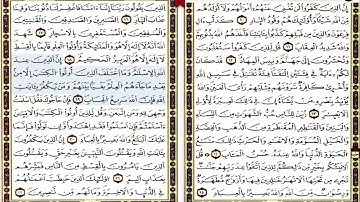 إِنَّ الَّذِينَ كَفَرُوا لَن تُغْنِيَ عَنْهُمْ أَمْوَالُهُمْ وَلَا أَوْلَادُهُم
مِّنَ اللَّهِ شَيْئًا وَأُولَٰئِكَ هُمْ وَقُودُ النَّارِ ١٠ كَدَأْبِ آلِ
فِرْعَوْنَ وَالَّذِينَ مِن قَبْلِهِمْ كَذَّبُوا بِآيَاتِنَا فَأَخَذَهُمُ اللَّهُ
بِذُنُوبِهِمْ وَاللَّهُ شَدِيدُ الْعِقَابِ ١١ قُل لِّلَّذِينَ كَفَرُوا
سَتُغْلَبُونَ وَتُحْشَرُونَ إِلَىٰ جَهَنَّمَ وَبِئْسَ الْمِهَادُ ١٢ قَدْ كَانَ
لَكُمْ آيَةٌ فِي فِئَتَيْنِ الْتَقَتَا فِئَةٌ تُقَاتِلُ فِي سَبِيلِ اللَّهِ
وَأُخْرَىٰ كَافِرَةٌ يَرَوْنَهُم مِّثْلَيْهِمْ رَأْيَ الْعَيْنِ وَاللَّهُ
يُؤَيِّدُ بِنَصْرِهِ مَن يَشَاءُ إِنَّ فِي ذَٰلِكَ لَعِبْرَةً لِّأُولِي
الْأَبْصَارِ ١٣ زُيِّنَ لِلنَّاسِ حُبُّ الشَّهَوَاتِ مِنَ النِّسَاءِ
وَالْبَنِينَ وَالْقَنَاطِيرِ الْمُقَنطَرَةِ مِنَ الذَّهَبِ
وَالْفِضَّةِ وَالْخَيْلِ الْمُسَوَّمَةِ وَالْأَنْعَامِ وَالْحَرْثِ ذَٰلِكَ مَتَاعُ
الْحَيَاةِ الدُّنْيَا وَاللَّهُ عِندَهُ حُسْنُ الْمَآبِ ١٤ قُلْ
أَؤُنَبِّئُكُم بِخَيْرٍ مِّن ذَٰلِكُمْ لِلَّذِينَ اتَّقَوْا عِندَ رَبِّهِمْ جَنَّاتٌ
تَجْرِي مِن تَحْتِهَا الْأَنْهَارُ خَالِدِينَ فِيهَا وَأَزْوَاجٌ مُّطَهَّرَةٌ
وَرِضْوَانٌ مِّنَ اللَّهِ وَاللَّهُ بَصِيرٌ بِالْعِبَادِ ١٥
الَّذِينَ يَقُولُونَ رَبَّنَا إِنَّنَا آمَنَّا فَاغْفِرْ لَنَا ذُنُوبَنَا وَقِنَا
عَذَابَ النَّارِ ١٦ الصَّابِرِينَ وَالصَّادِقِينَ وَالْقَانِتِينَ
وَالْمُنفِقِينَ وَالْمُسْتَغْفِرِينَ بِالْأَسْحَارِ ١٧ شَهِدَ
اللَّهُ أَنَّهُ لَا إِلَٰهَ إِلَّا هُوَ وَالْمَلَائِكَةُ وَأُولُو الْعِلْمِ قَائِمًا بِالْقِسْطِ
لَا إِلَٰهَ إِلَّا هُوَ الْعَزِيزُ الْحَكِيمُ ١٨ إِنَّ الدِّينَ عِندَ
اللَّهِ الْإِسْلَامُ وَمَا اخْتَلَفَ الَّذِينَ أُوتُوا الْكِتَابَ إِلَّا مِن
بَعْدِ مَا جَاءَهُمُ الْعِلْمُ بَغْيًا بَيْنَهُمْ وَمَن يَكْفُرْ بِآيَاتِ
اللَّهِ فَإِنَّ اللَّهَ سَرِيعُ الْحِسَابِ ١٩ فَإِنْ حَاجُّوكَ فَقُلْ أَسْلَمْتُ
وَجْهِيَ لِلَّهِ وَمَنِ اتَّبَعَنِ وَقُل لِّلَّذِينَ أُوتُوا الْكِتَابَ وَالْأُمِّيِّينَ
أَأَسْلَمْتُمْ فَإِنْ أَسْلَمُوا فَقَدِ اهْتَدَوا وَّإِن تَوَلَّوْا فَإِنَّمَا
عَلَيْكَ الْبَلَاغُ وَاللَّهُ بَصِيرٌ بِالْعِبَادِ ٢٠ إِنَّ الَّذِينَ يَكْفُرُونَ
بِآيَاتِ اللَّهِ وَيَقْتُلُونَ النَّبِيِّينَ بِغَيْرِ حَقٍّ وَيَقْتُلُونَ
الَّذِينَ يَأْمُرُونَ بِالْقِسْطِ مِنَ النَّاسِ فَبَشِّرْهُم
بِعَذَابٍ أَلِيمٍ ٢١ أُولَٰئِكَ الَّذِينَ حَبِطَتْ أَعْمَالُهُمْ
فِي الدُّنْيَا وَالْآخِرَةِ وَمَا لَهُم مِّن نَّاصِرِينَ ٢٢